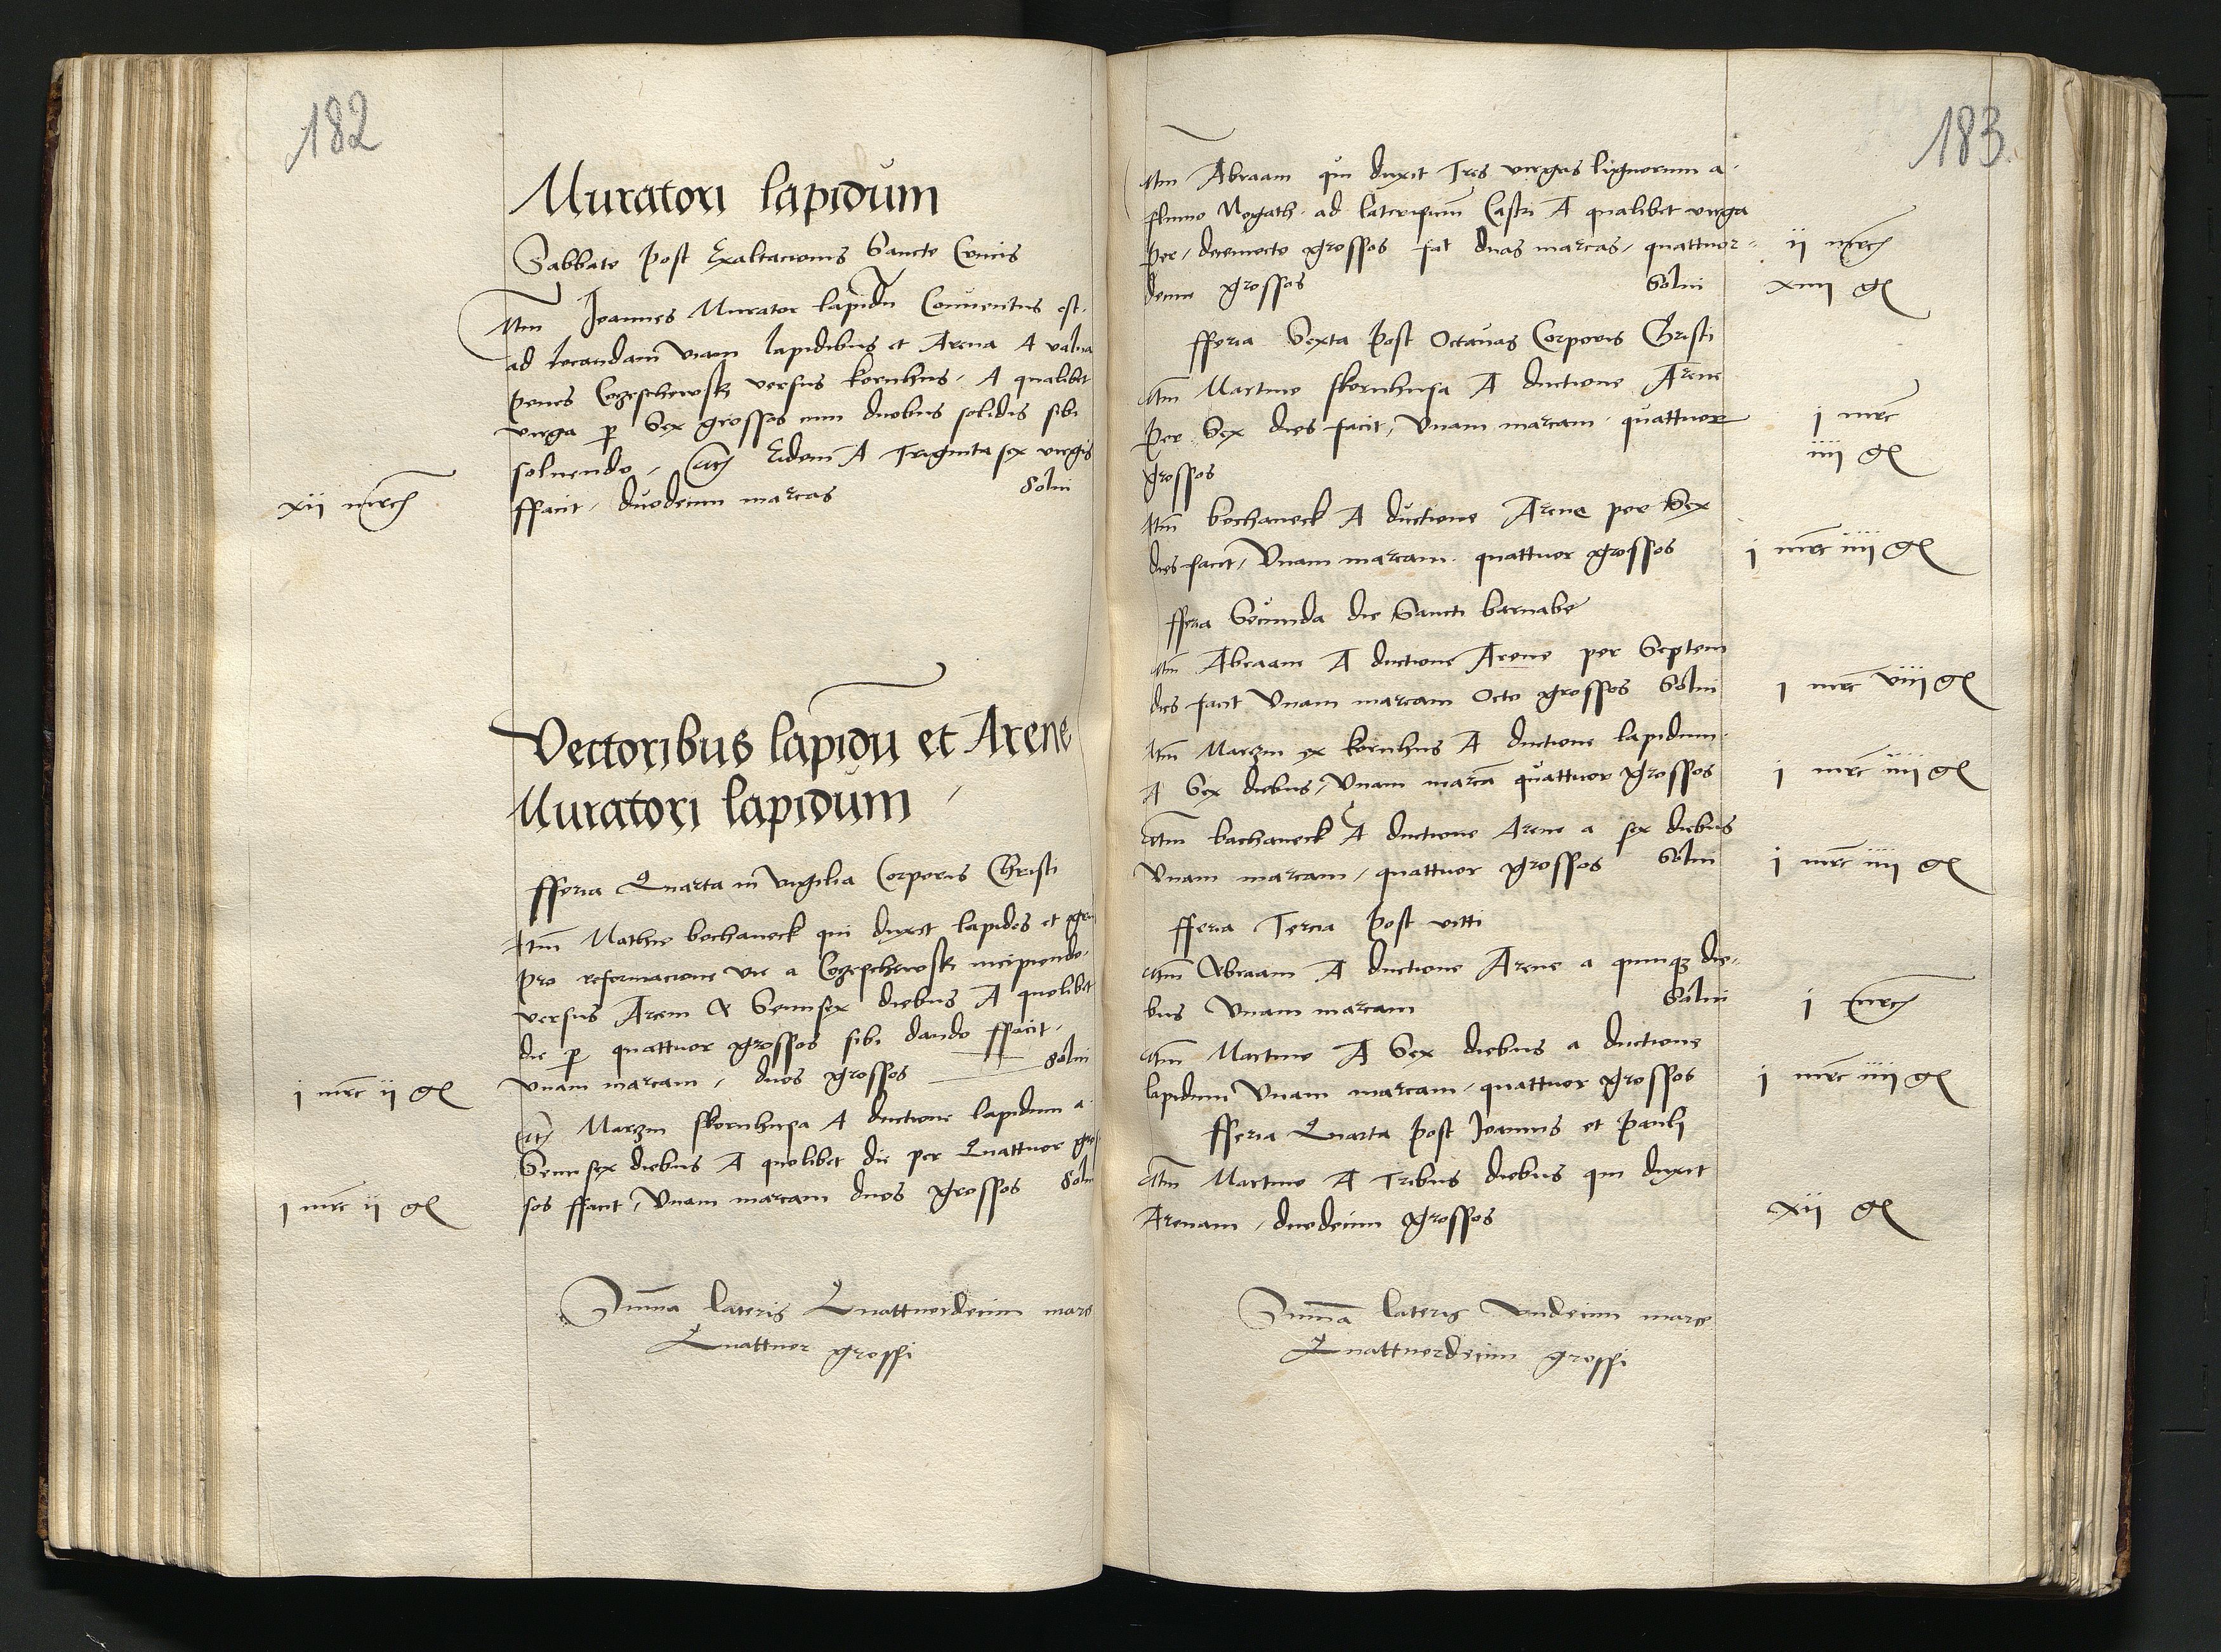 182
Muratori lapidum
Sabbato post Exaltacionis Sancte Crucis
Itm Joannes Murator lapidu Conuentus est
ad locandam viam lapidibus et Arena A valua
penes versus kornhus A qualibet
virga p Sex grossos cum duobus solidis sibi
soluendo It Eidem A Triginta sex virgis
xii mrc ffacit duodecim marcas Solui
Vectoribus lapidu et Arene
Muratori lapidum
fferia Quarta in vigilia Corporis Christi
Itm Mathie bochaneck qui duxit lapides et
pro reformacione vie a incipiendo
versus Arcem A Sedecim diebus A quolibet
die p quattuor grossos sibi dando ffacit
i mrc ii g vnam marcam duos grossos Solui
It Marzin skornhusa A ductione lapidum a
diebus A quolibet die per Quattuor gros
i mrc ii g sos ffacit Vnam marcam duos grossos Solui
Suma lateris Quattuordecim marc
Quattuor grossi
183
Itm Abraam qui duxit Tres virgas lignorum a
fluuio Nogath ad laterificium Castri A qualibet virga
per decemocto grossos fat duas marcas quattuor ii mrc
decim grossos Solui xiiii g
fferia Sexta post Octauas Corporis Christi
Itm Martino skornhusa A ductione Arene
Per Sex dies facit Vnam marcam quattuor i mrc
grossos iiii g
Itm bochaneck A ductione Arene per Sex
dies facit Vnam marcam quattuor grossos i mrc iiii g
fferia Secunda die Sancti barnabe
Itm Abraam A ductione Arene per Septem
dies facit Vnam marcam Octo grossos Solui i mrc viii g
Itm Marzin ex kornhus A ductione lapidum
A Sex diebus Vnam marca quattuor grossos i mrc iiii g
Itm bachaneck A ductione Arene a sex diebus
Vnam marcam quattuor grossos Solui i mrc iiii g
fferia Tercia post vitti
Itm Abraam A ductione Arene a quinqz die
bus Vnam marcam Solui i mrc
Itm Martino A Sex diebus a ductione
lapidum Vnam marcam quattuor grossos i mrc iiii g
fferia Quarta post Joannis et Pauli
Itm Martino A Tribus diebus qui duxit
Arenam duodecim grossos xii g
Suma lateris vndecim marce
Quattuordecim grossi